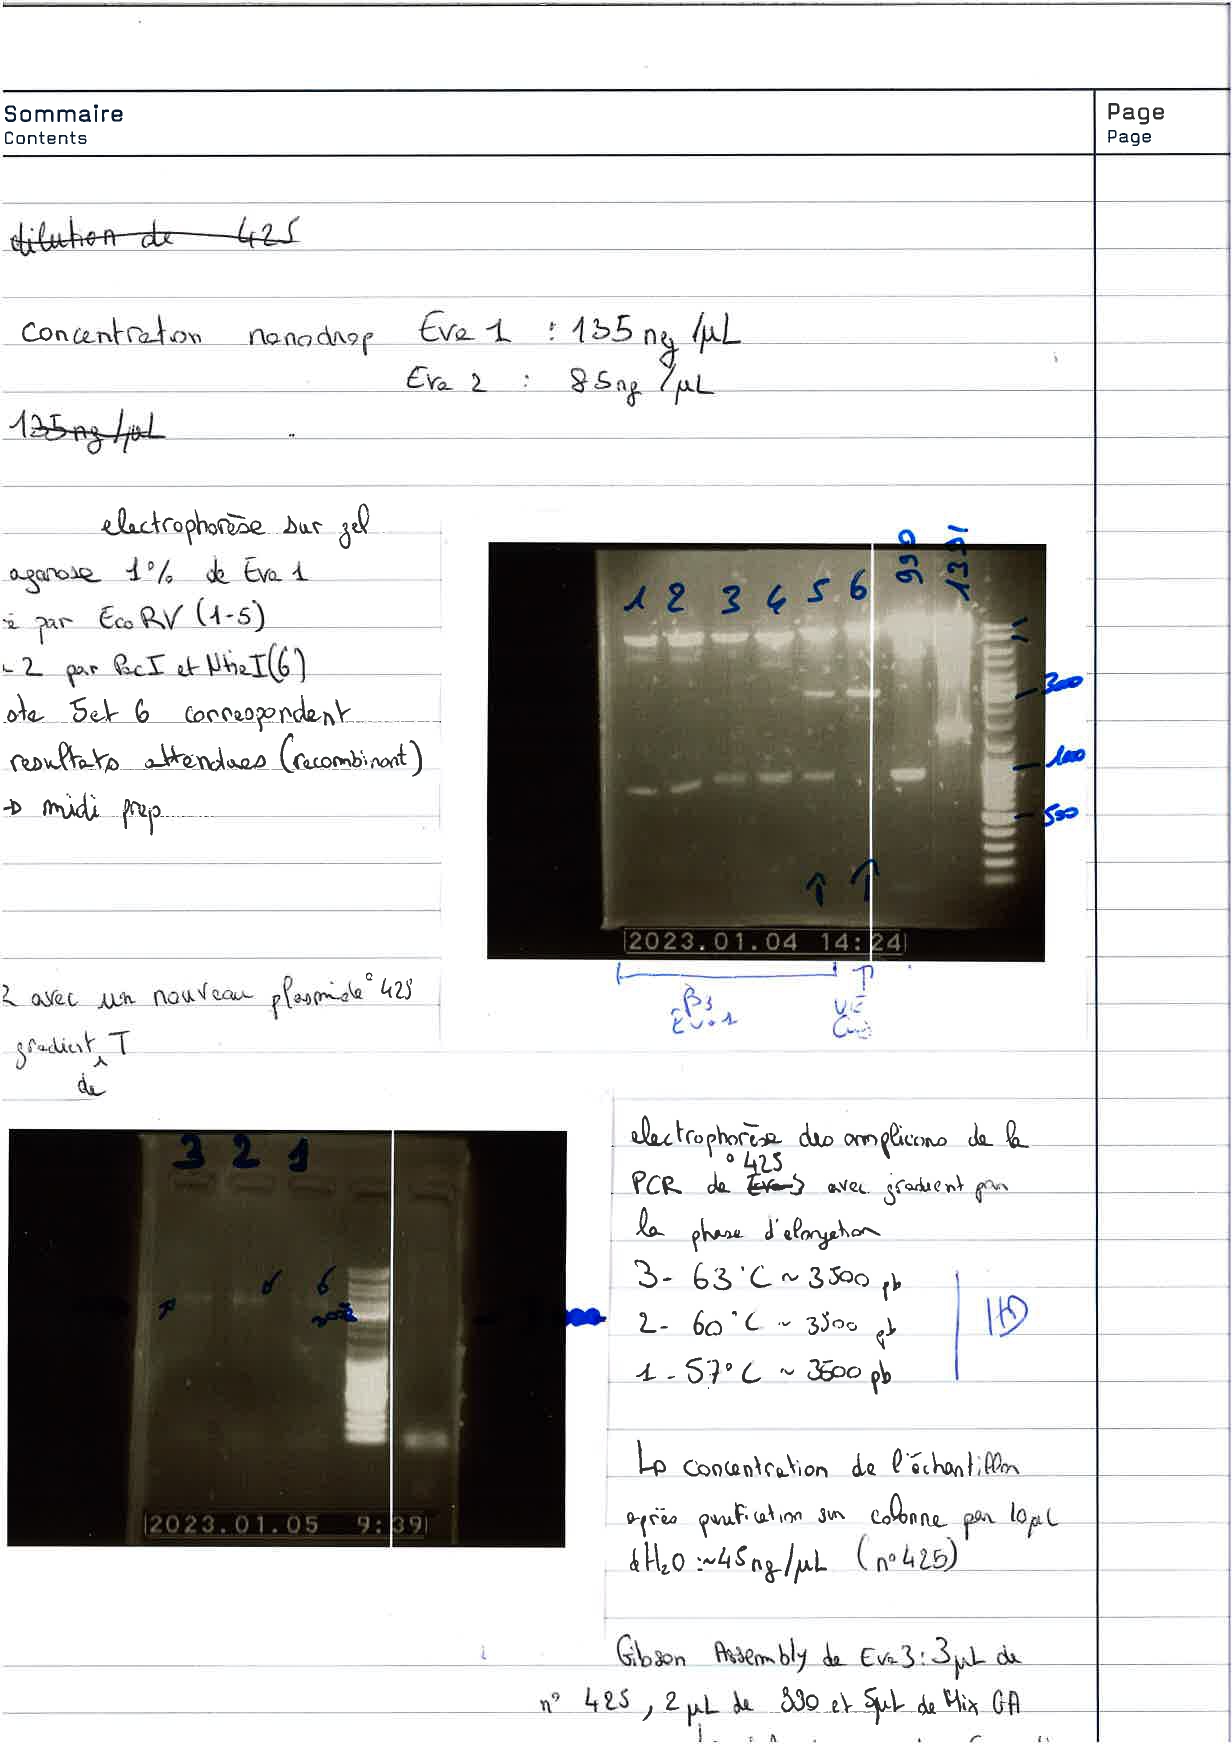 Sommaire
Contents
Page
Page
dilution de 425
Concentration nanodrop Eva 1 : 135 ng/µL
Eva 2 : 85ng/µL
135ng/µL
electrophorèse sur gel
agarose 1% de Eva 1
é par EcoRV (1-5)
2 par PacI et NheI(6)
ote 5 et 6 correspondent
resultats attendues (recombinant)
→ midi prep
1 2 3 4 5 6 990 1391
300
100
500
↑ ↑
2023.01.04 14:24
Eva 1
2 avec un nouveau plasmide °425
gradient T
de
3 2 1
6
2023.01.05 9:39
electrophorèse des amplicons de la
° 425
PCR de Eva 3 avec gradient par
la phase d'elongation
3- 63°C ~ 3500 pb
2- 60°C ~ 3500 pb
1- 57°C ~ 3500 pb
La concentration de l'échantillon
après purification sur colonne par 10µL
dH₂O :~45ng/µL (n°425)
Gibson Assembly de Eva3: 3µL de
n° 425, 2µL de 990 et 5µL de Mix GA